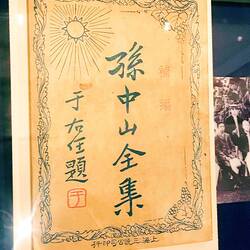 孫中山全集
于右任題
上海三民公司印行